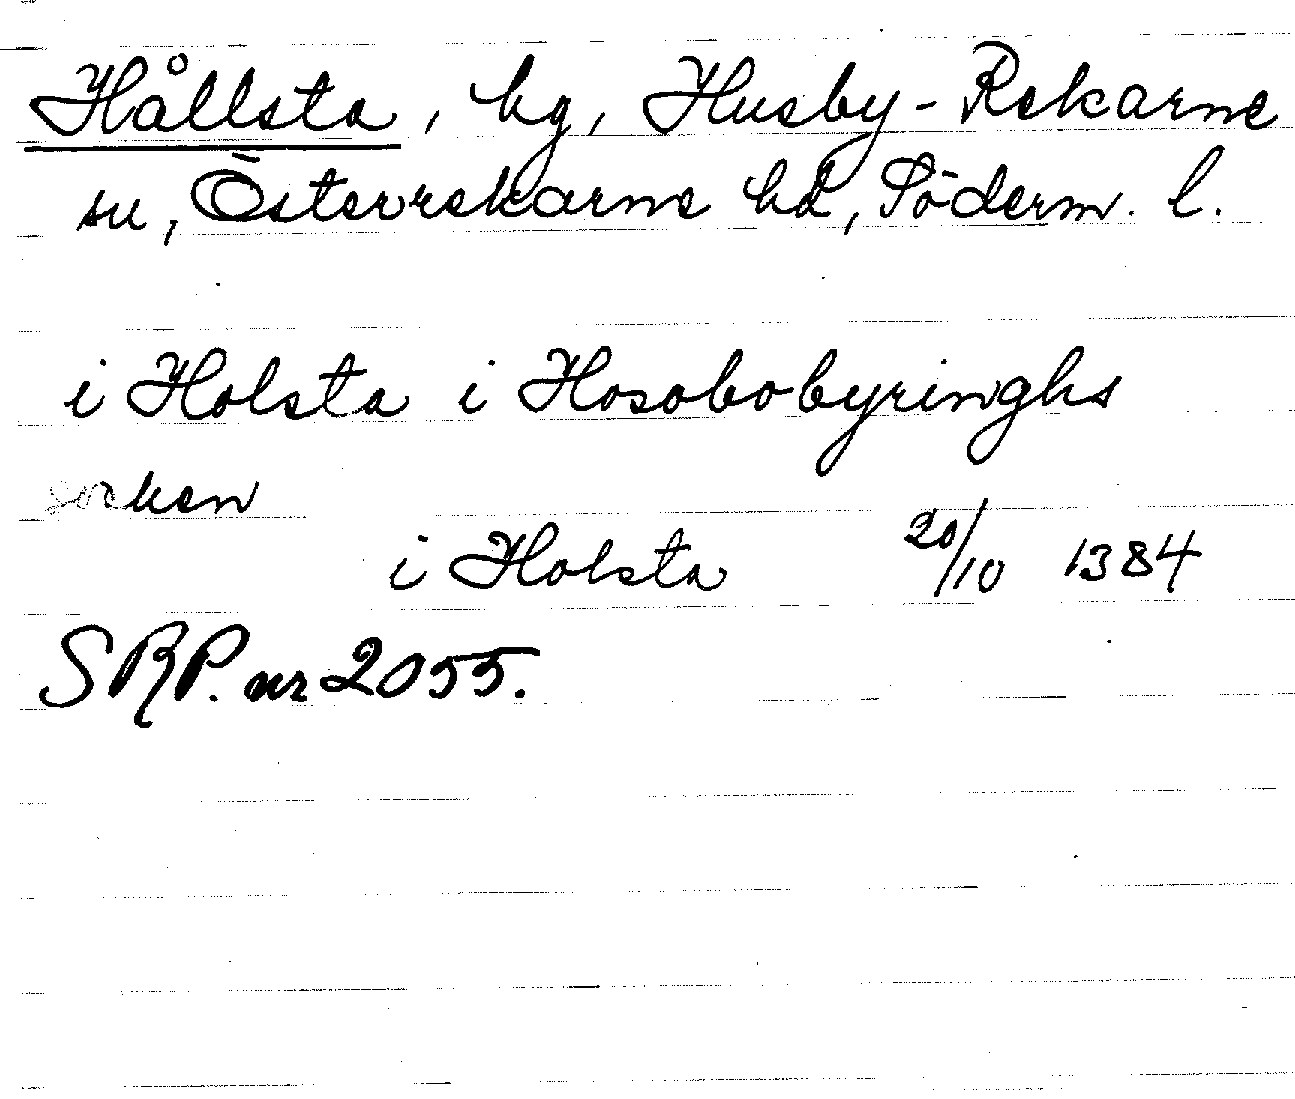 Hållsta, by, Husby-Rekarne
sn, Österrekarne hd, Söderm. l.
i Holsta i Hosobobyringhs
socken
i Holsta 20/10 1384
SRP. nr 2055.